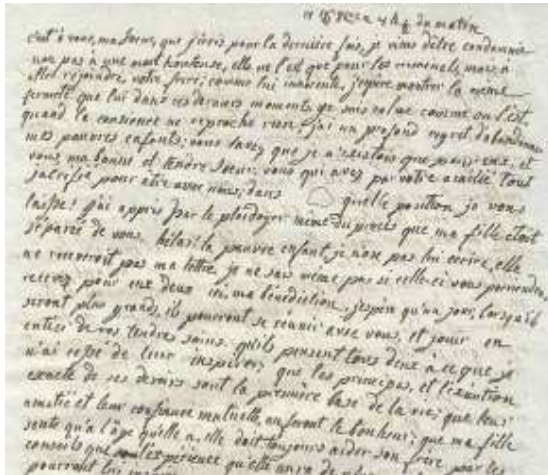 ce 16 8bre a 4 h ½ du matin
c'est à vous, ma soeur, que j'écris pour la dernière fois, je viens d'etre condamnée
non pas à une mort honteuse, elle ne l'est que pour les criminels, mais à
aller rejoindre votre frere; comme lui innocente, j'espère montrer la même
fermeté que lui dans ces derniers moments. je suis calme comme on l'est
quand la conscience ne reproche rien, j'ai un profond regret d'abandonner
mes pauvres enfants; vous savez que je n'existois que pour eux, et
vous, ma bonne et tendre soeur: vous qui avez par votre amitié tout
sacrifié pour être avec nous, dans quelle position je vous
laisse! j'ai appris par le plaidoyer même du procès que ma fille étoit
séparée de vous. hélas! la pauvre enfant, je n'ose pas lui ecrire, elle
ne recevroit pas ma lettre je ne sais même pas si celle-ci vous parviendra,
recevez pour eux deux ici, ma bénédiction. j'espère qu'un jour, lorsqu'ils
seront plus grands, ils pourront se réunir avec vous, et jouir en
entier de vos tendres soins. qu'ils pensent tous deux à ce que je
n'ai cessé de leur inspirer, que les principes, et l'exécution
exacte de ses devoirs sont la première base de la vie; que leur
amitié et leur confiance mutuelle, en feront le bonheur; que ma fille
sente qu'à l'âge qu'elle a, elle doit toujours aider son frère par les
conseils que l'expérience qu'elle aura de plus
pourront lui